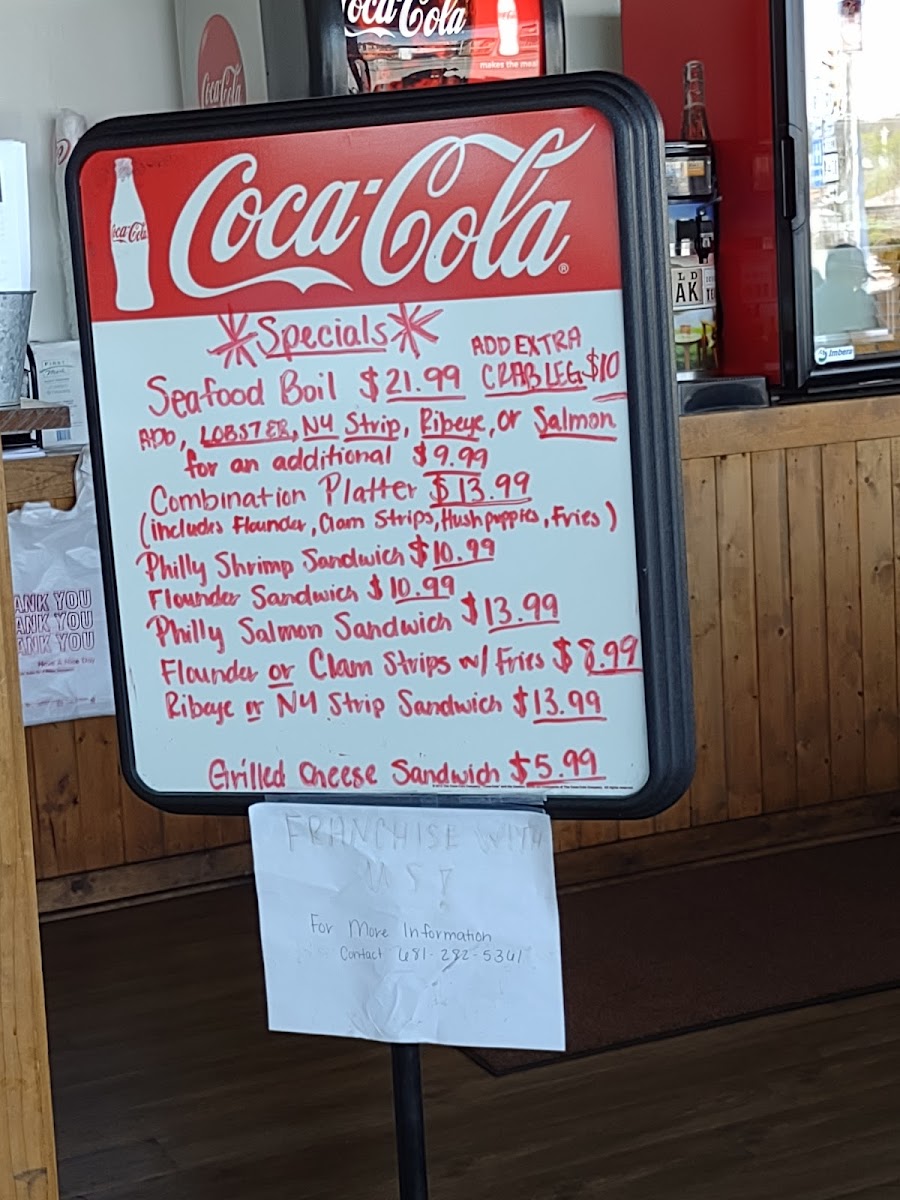 Coca-Cola
makes the meal
Coca-Cola
Coca-Cola
Coca-Cola®
*Specials*
Seafood Boil $21.99
ADD EXTRA
CRAB LEG $10
ADD, LOBSTER, NY Strip, Ribeye, or Salmon
for an additional $9.99
Combination Platter $13.99
(includes Flounder, Clam Strips, Hushpuppies, Fries)
Philly Shrimp Sandwich $10.99
Flounder Sandwich $10.99
Philly Salmon Sandwich $13.99
Flounder or Clam Strips w/ Fries $8.99
Ribeye or NY Strip Sandwich $13.99
Grilled Cheese Sandwich $5.99
FRANCHISE WITH
US!
For More Information
Contact 681-282-5341
ANK YOU
ANK YOU
ANK YOU
Have a Nice Day
LD
AK
Imbera